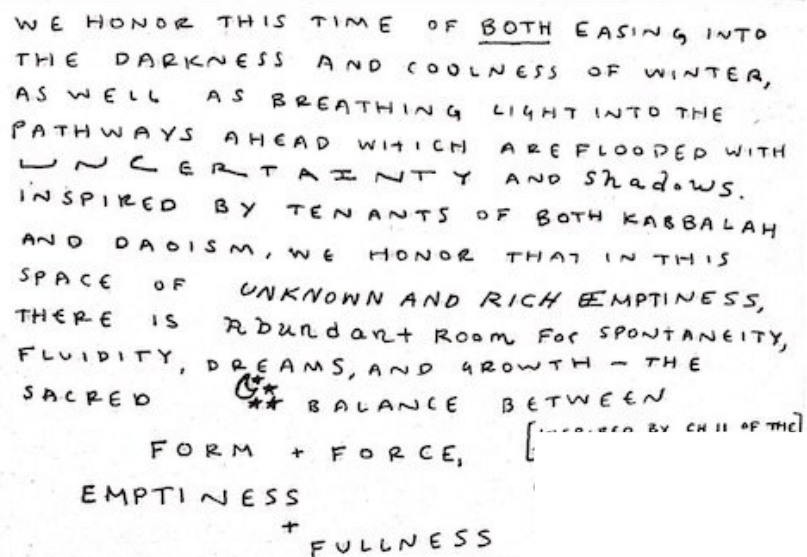 WE HONOR THIS TIME OF BOTH EASING INTO
THE DARKNESS AND COOLNESS OF WINTER,
AS WELL AS BREATHING LIGHT INTO THE
PATHWAYS AHEAD WHICH ARE FLOODED WITH
UNCERTAINTY AND shadows.
INSPIRED BY TENANTS OF BOTH KABBALAH
AND DAOISM, WE HONOR THAT IN THIS
SPACE OF UNKNOWN AND RICH EMPTINESS,
THERE IS Abundant Room For SPONTANEITY,
FLUIDITY, DREAMS, AND GROWTH - THE
SACRED BALANCE BETWEEN
[INSPIRED BY CH 11 OF THE
FORM + FORCE,
EMPTINESS
+
FULLNESS